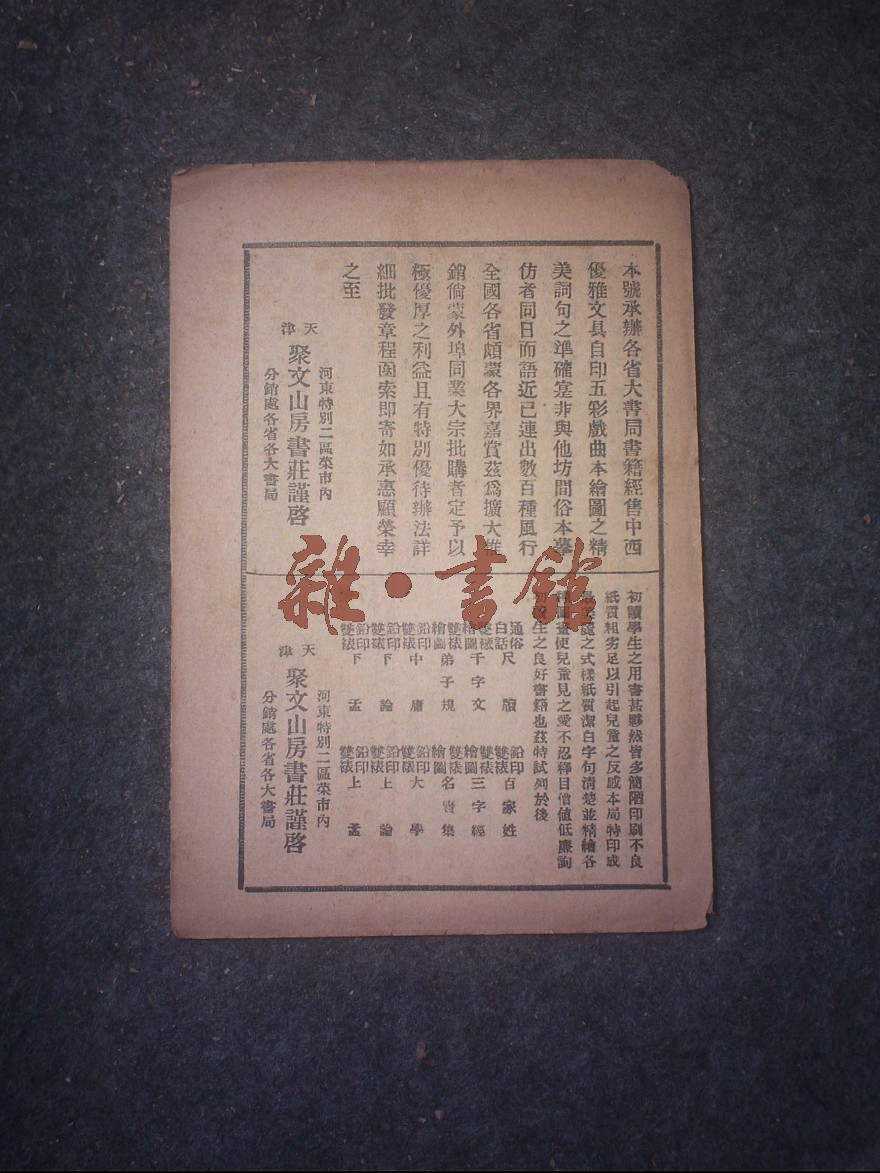 本號承辦各省大書局書籍經售中西
優雅文具自印五彩戲曲本繪圖之精
美詞句之準確寔非與他坊間俗本摹
仿者同日而語近已連出數百種風行
全國各省頗蒙各界嘉賞茲爲擴大推
銷倘蒙外埠同業大宗批購者定予以
極優厚之利益且有特別優待辦法詳
細批發章程函索即寄如承惠顧榮幸
之至
河東特別二區菜市內
天津
聚文山房書莊謹啓
分銷處各省各大書局
初讀學生之用書甚夥然皆多簡陋印刷不良
紙質粗劣足以引起兒童之反感本局特印成
之式樣紙質潔白字句清楚並精繪各
圖畫使兒童見之愛不忍釋目價値低廉洵
學生之良好書籍也茲特試列於後
通俗白話尺牘
鉛印雙裱百家姓
雙裱繪圖千字文
雙裱繪圖三字經
雙裱繪圖弟子規
雙裱繪圖名賢集
鉛印雙裱中庸
鉛印雙裱大學
鉛印雙裱下論
鉛印雙裱上論
鉛印雙裱下孟
鉛印雙裱上孟
河東特別二區菜市內
天津
聚文山房書莊謹啓
分銷處各省各大書局
雜·書館